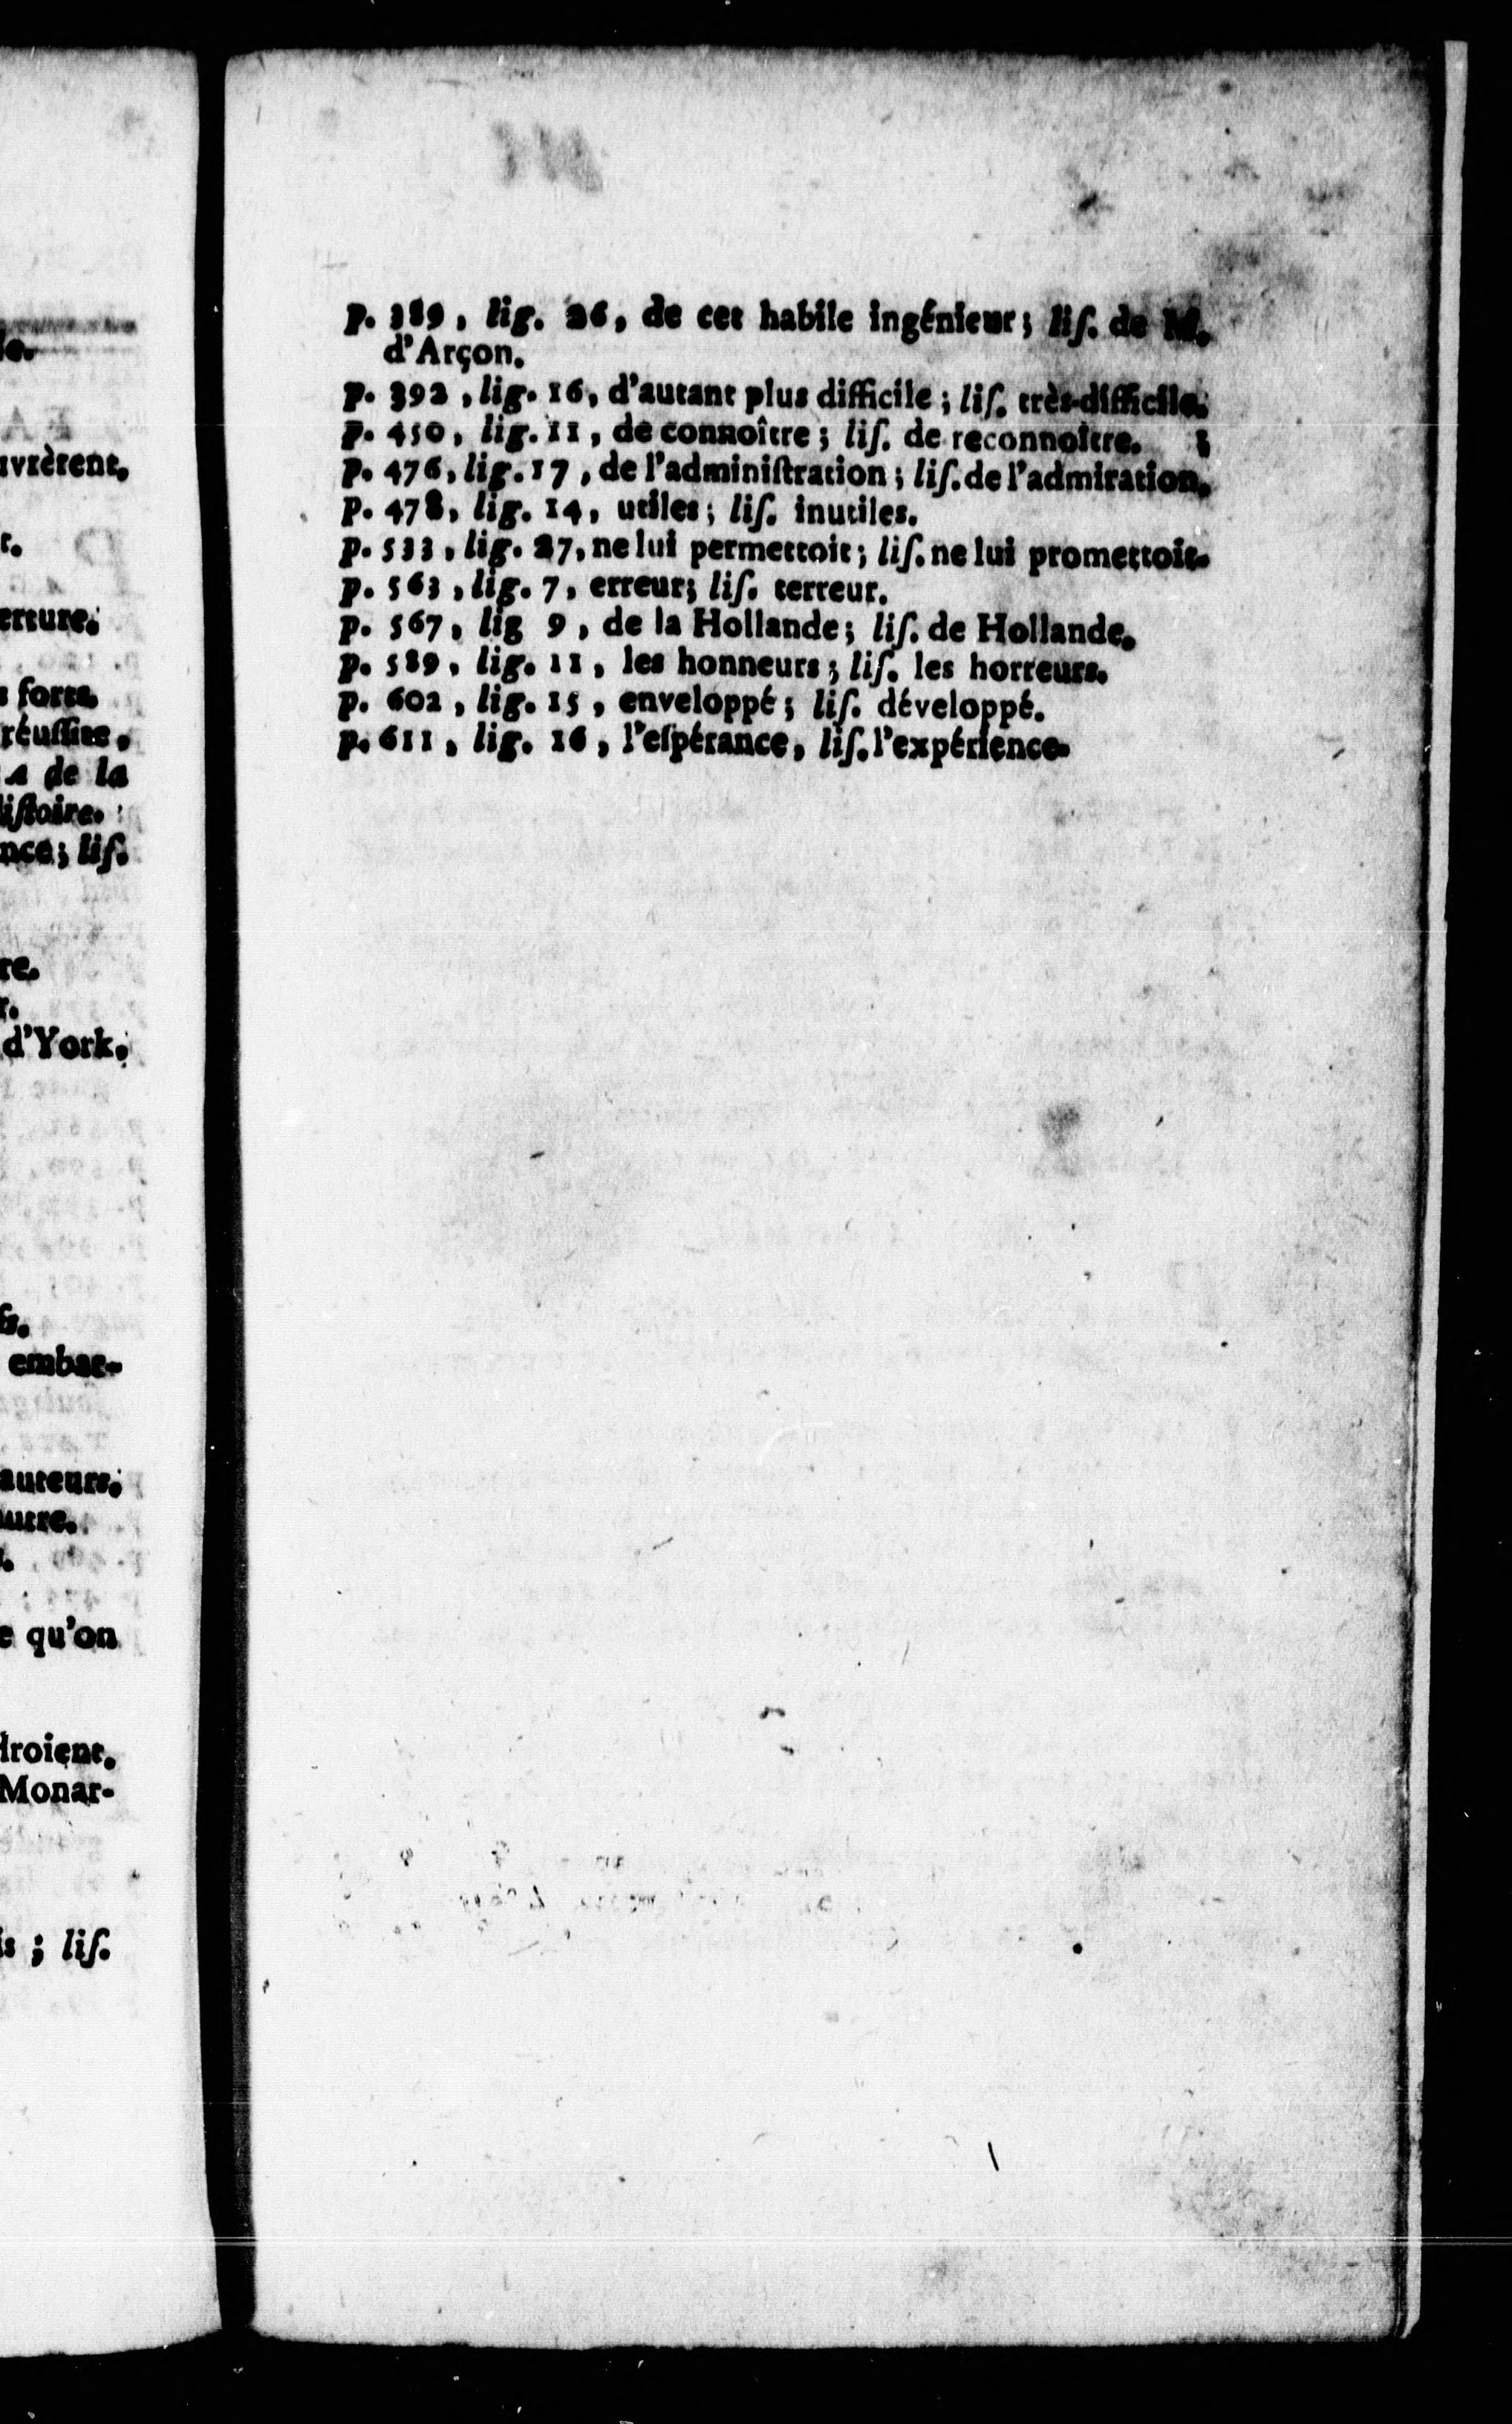 p. 389, lig. 26, de cet habile ingénieur; liſ. de M.
d'Arçon.
p. 392, lig. 16, d'autant plus difficile; liſ. très-difficile.
p. 450, lig. 11, de connoître; liſ. de reconnoître.
p. 476, lig. 17, de l'adminiſtration; liſ. de l'admiration.
p. 478, lig. 14, utiles; liſ. inutiles.
p. 533, lig. 27, ne lui permettoit; liſ. ne lui promettoit.
p. 563, lig. 7, erreur; liſ. terreur.
p. 567, lig 9, de la Hollande; liſ. de Hollande.
p. 589, lig. 11, les honneurs; liſ. les horreurs.
p. 602, lig. 15, enveloppé; liſ. développé.
p. 611, lig. 16, l'eſpérance, liſ. l'expérience.